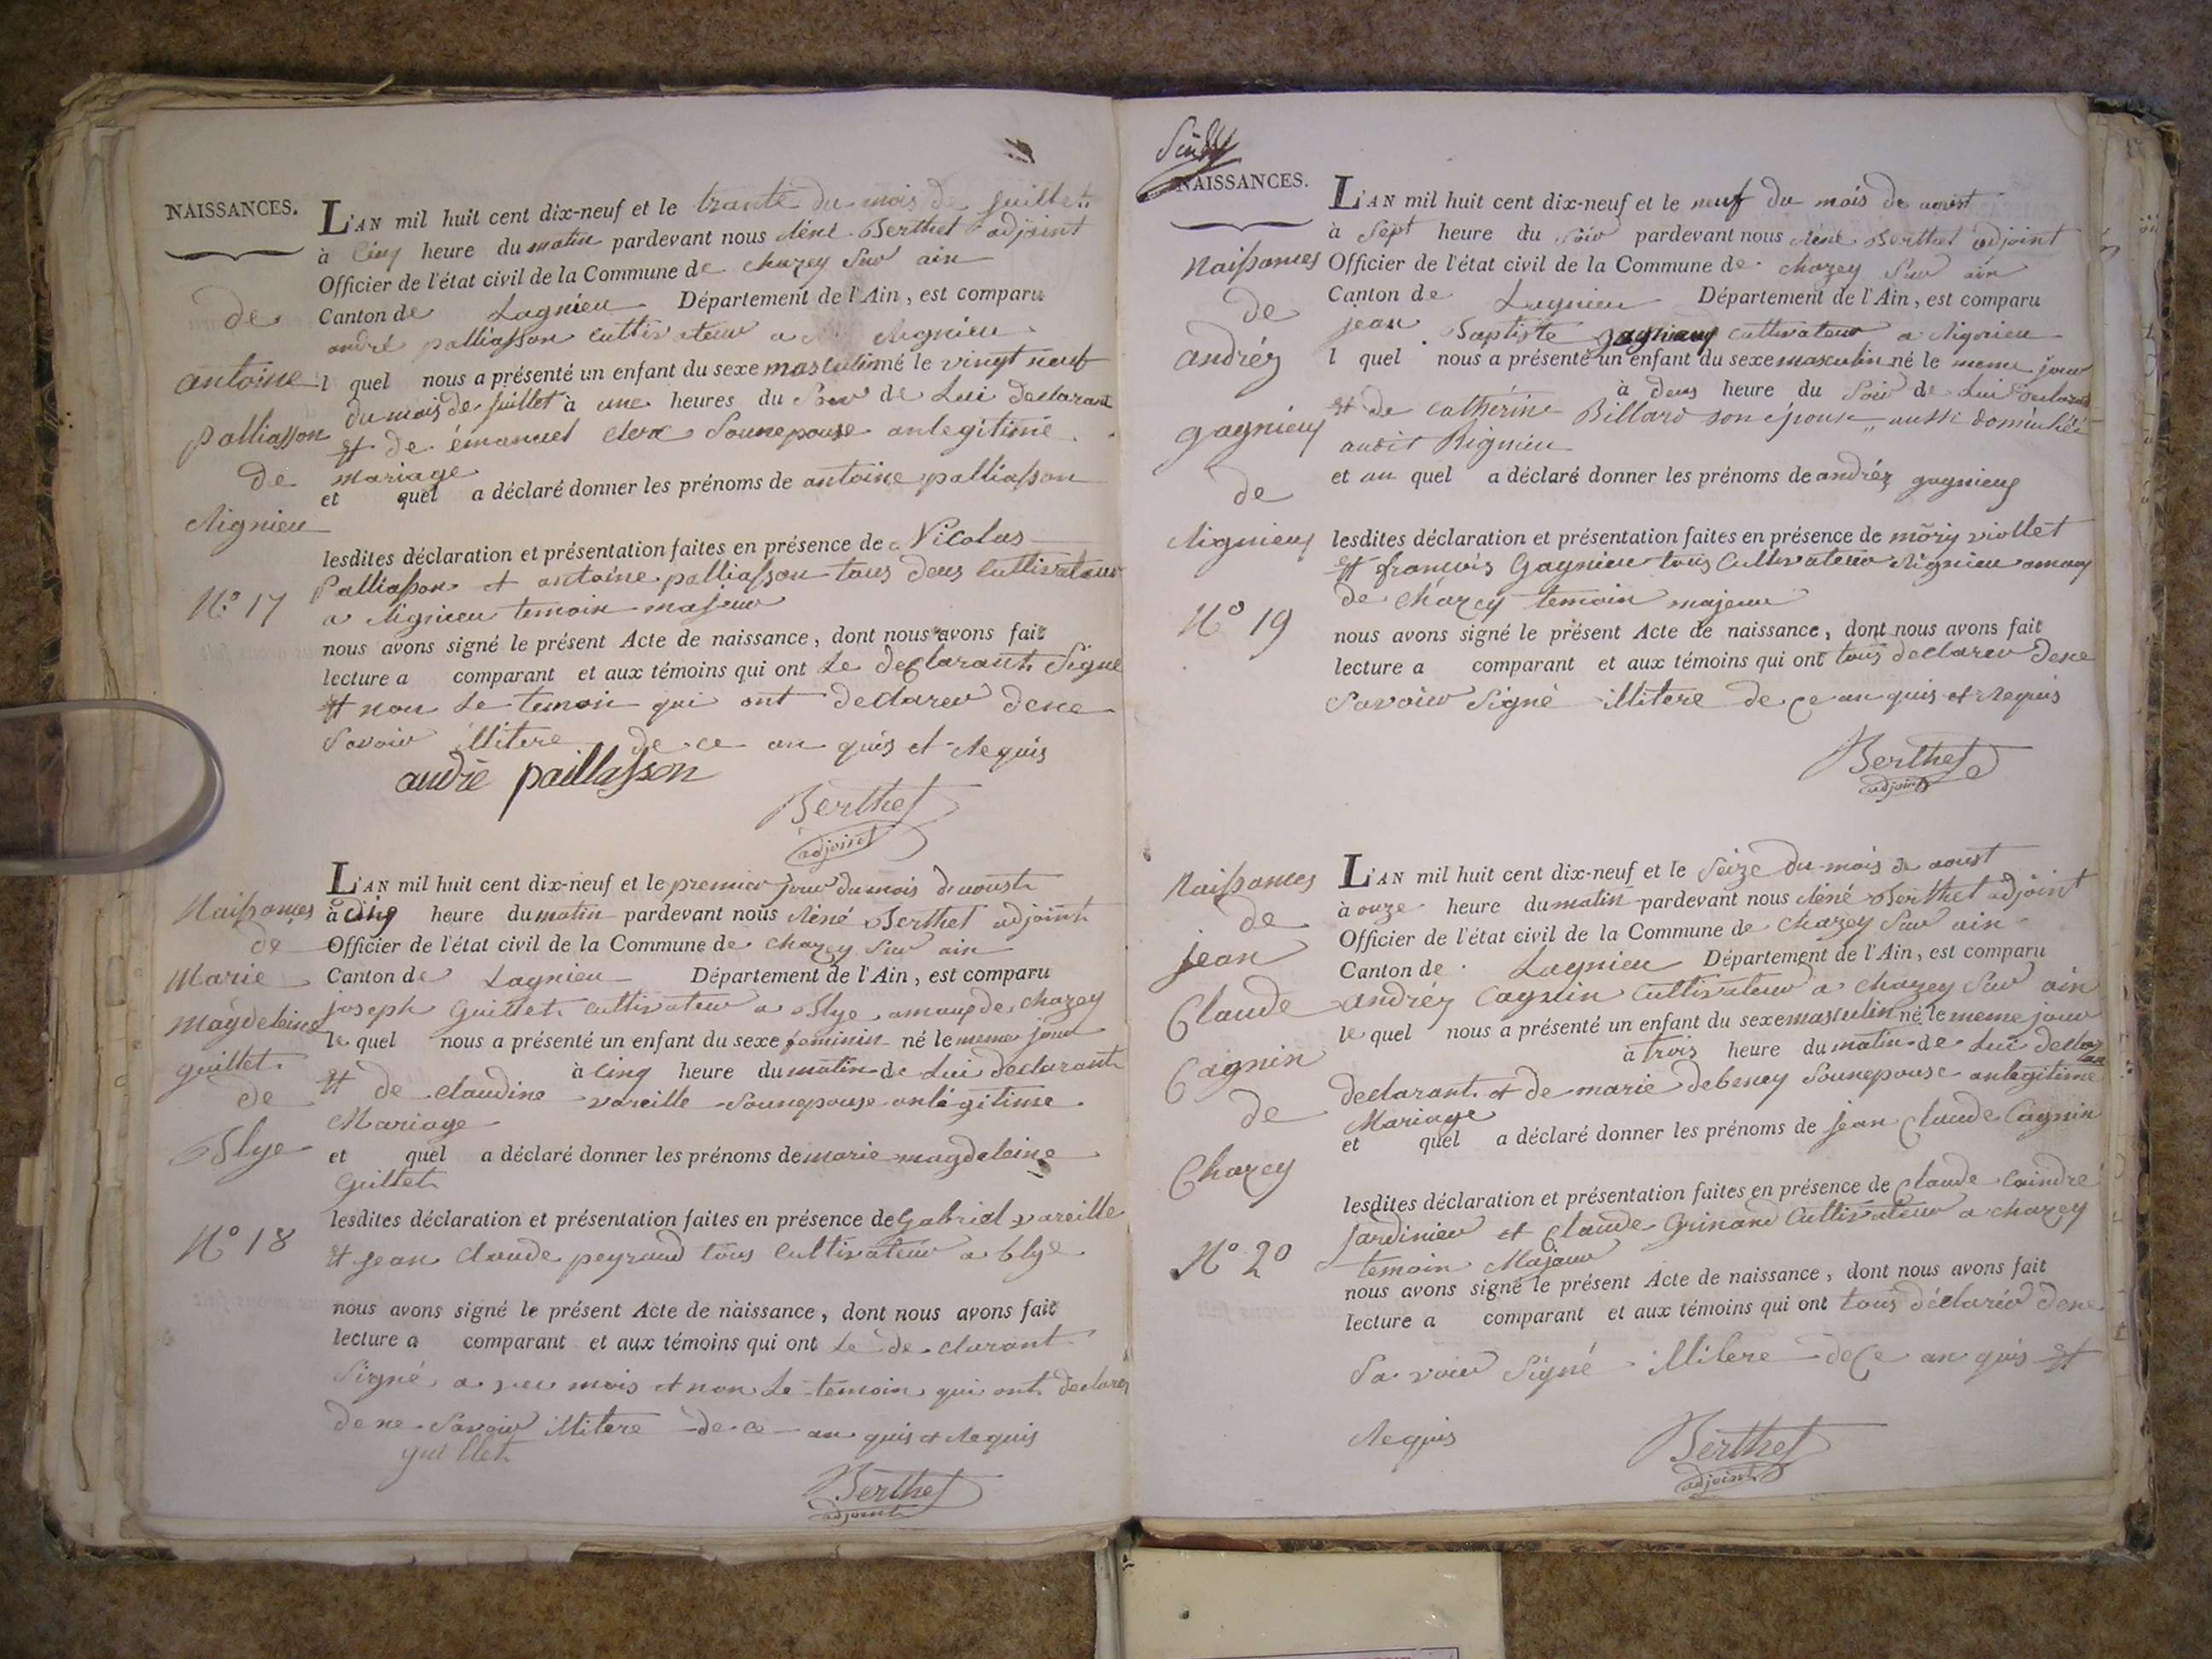 NAISSANCES.
de
antoine
palliasson
de
Rignieu
N.o 17
L'AN mil huit cent dix-neuf et le trante du mois de juillet
à cinq heure du matin pardevant nous Réné Berthet adjoint
Officier de l'état civil de la Commune de chazey Sur ain
Canton de Lagnieu Département de l'Ain, est comparu
andré palliasson cultivateur a Rignieu
l quel nous a présenté un enfant du sexe masculin né le vingt neuf
du mois de juillet à une heures du Soir de Lui declarant
et de émanuel Sounepouse anlegitime
mariage
et quel a déclaré donner les prénoms de antoine palliasson
lesdites déclaration et présentation faites en présence de Nicolas
Palliasson et antoine palliasson tous deus Cultivateur
a Rignieu temoin majeur
nous avons signé le présent Acte de naissance, dont nous avons fait
lecture a comparant et aux témoins qui ont Le declarant Signé
et non Le temoin qui ont declarer dene
Savoir illitere de ce anquis et Requis
andré paillasson
Berthet
adjoint
Naissances
de
Marie
Magdeleine
guillet
de
Blye
N.o 18
L'AN mil huit cent dix-neuf et le premier jour du mois de aoust
à cinq heure du matin pardevant nous Réné Berthet adjoint
Officier de l'état civil de la Commune de chazey Sur ain
Canton de Lagnieu Département de l'Ain, est comparu
joseph Guillet cultivateur a Blye amaux de chazey
le quel nous a présenté un enfant du sexe feminin né le meme jour
à cinq heure du matin de Lui declarant
et de claudine vareille Sounepouse anlégitime
Mariage
et quel a déclaré donner les prénoms de marie magdeleine
Guillet
lesdites déclaration et présentation faites en présence de Gabriel vareille
et jean claude peyraud tous Cultivateur a blye
nous avons signé le présent Acte de naissance, dont nous avons fait
lecture a comparant et aux témoins qui ont Le declarant
Signé a mois et non Le temoin qui ont declarer
de ne Savoir illitere de ce anquis et Requis
guillet
Berthet
adjoint
NAISSANCES.
Naissances
de
andréz
gagnieux
de
Rignieux
N.o 19
L'AN mil huit cent dix-neuf et le neuf du mois de aoust
à Sept heure du Soir pardevant nous Réné Berthet adjoint
Officier de l'état civil de la Commune de chazey Sur ain
Canton de Lagnieu Département de l'Ain, est comparu
jean Baptiste cultivateur a Rignieu
l quel nous a présenté un enfant du sexe masculin né le meme jour
à deus heure du Soir de Lui declarant
et de catherine Billard son épouse aussi domiciliée
audit Rignieu
et au quel a déclaré donner les prénoms de andréz gagnieux
lesdites déclaration et présentation faites en présence de mory viollet
et françois Gagnieu tous Cultivateur Rignieu amaux
de chazey temoin majeur
nous avons signé le présent Acte de naissance, dont nous avons fait
lecture a comparant et aux témoins qui ont tous declarer dene
Savoir Signé illitere de ce anquis et Requis
Berthet
adjoint
Naissances
de
jean
Claude
Cagnin
de
Chazey
N.o 20
L'AN mil huit cent dix-neuf et le Seize du mois de aoust
à onze heure du matin pardevant nous Réné Berthet adjoint
Officier de l'état civil de la Commune de chazey Sur ain
Canton de Lagnieu Département de l'Ain, est comparu
andréz Cagnin Cultivateur a chazey Sur ain
le quel nous a présenté un enfant du sexe masculin né le meme jour
à trois heure du matin de Lui declaran
declarant et de marie debeney Sounepouse anlegitime
Mariage
et quel a déclaré donner les prénoms de jean Claude Cagnin
lesdites déclaration et présentation faites en présence de Claude Coindre
jardinier et Claude Grinand Cultivateur a chazey
temoin Majeur
nous avons signé le présent Acte de naissance, dont nous avons fait
lecture a comparant et aux témoins qui ont tous déclarér dene
Savoir Signé illitere de ce anquis et
Requis
Berthet
adjoint